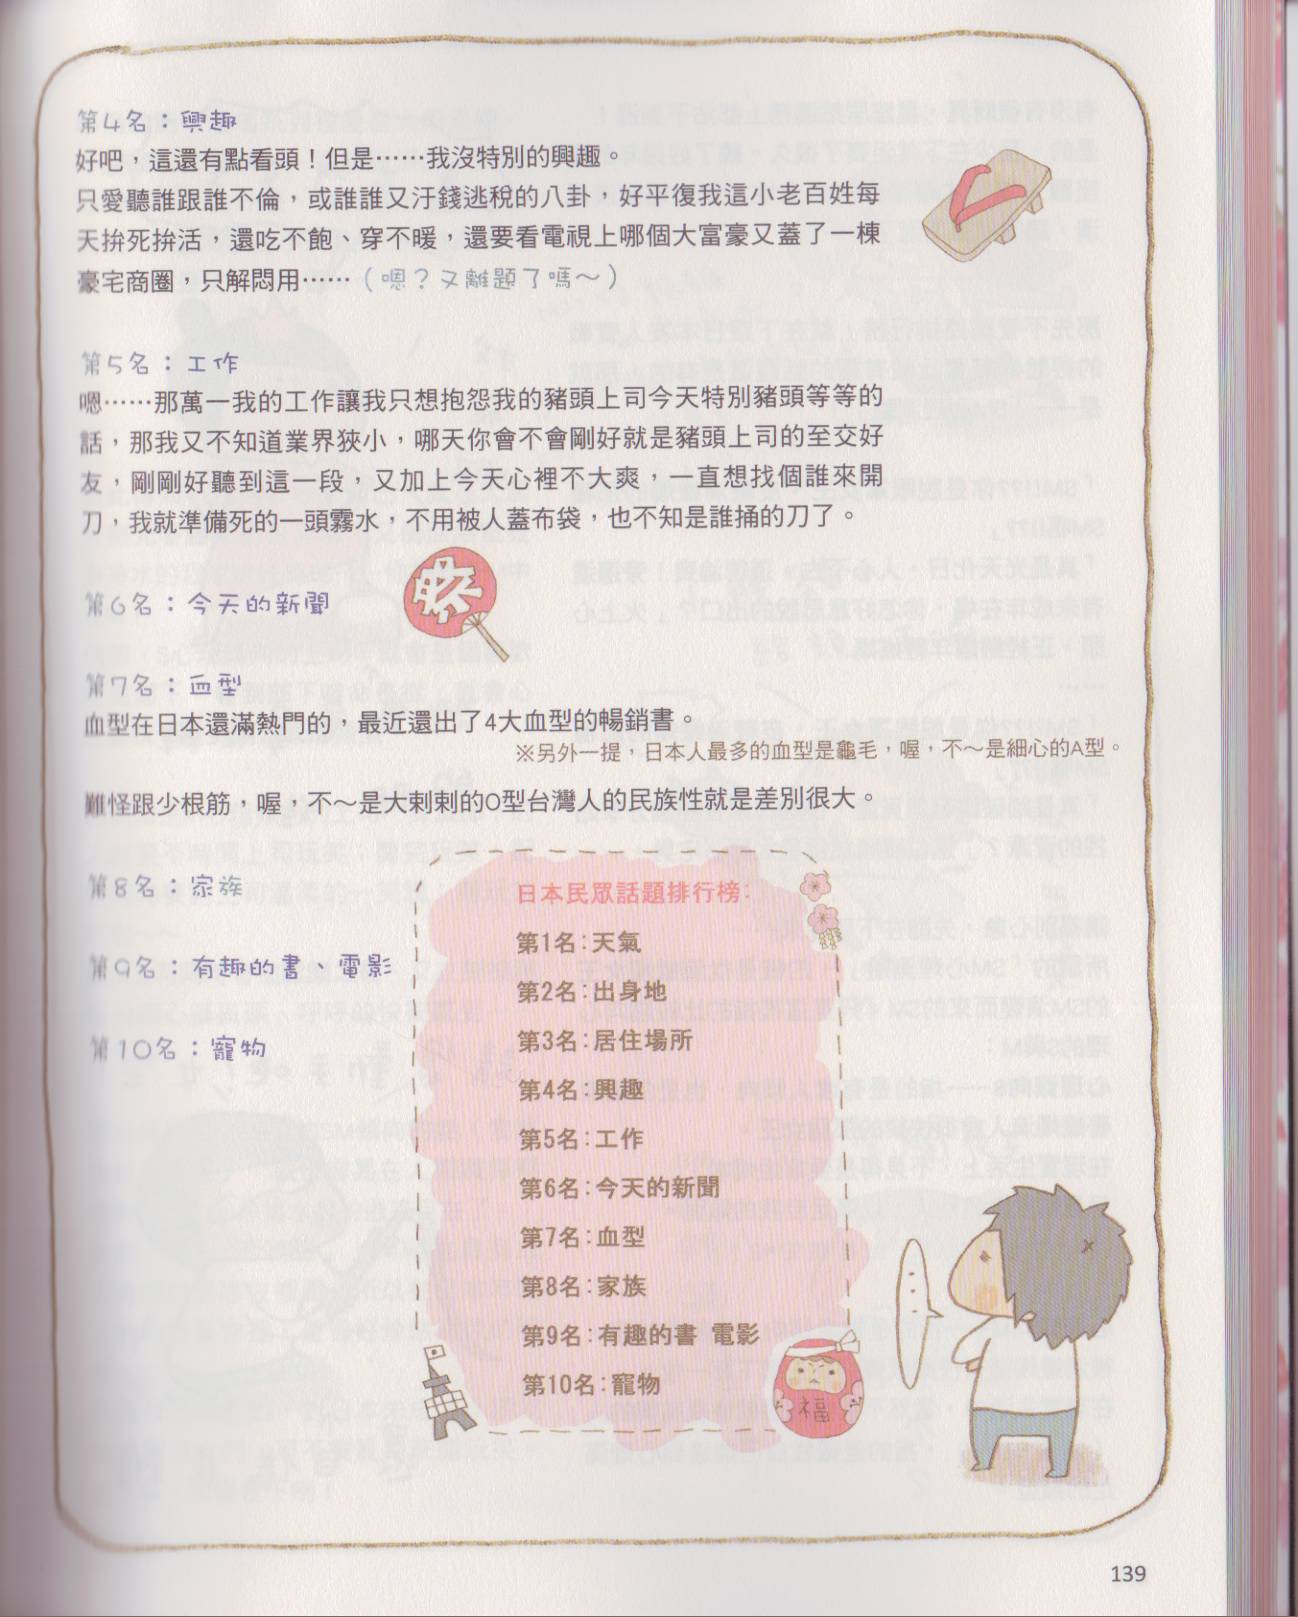 第4名：興趣
好吧，這還有點看頭！但是……我沒特別的興趣。
只愛聽誰跟誰不倫，或誰誰又汙錢逃稅的八卦，好平復我這小老百姓每
天拚死拚活，還吃不飽、穿不暖，還要看電視上哪個大富豪又蓋了一棟
豪宅商圈，只解悶用……（嗯？又離題了嗎～）
第5名：工作
嗯……那萬一我的工作讓我只想抱怨我的豬頭上司今天特別豬頭等等的
話，那我又不知道業界狹小，哪天你會不會剛好就是豬頭上司的至交好
友，剛剛好聽到這一段，又加上今天心裡不大爽，一直想找個誰來開
刀，我就準備死的一頭霧水，不用被人蓋布袋，也不知是誰捅的刀了。
祭
第6名：今天的新聞
第7名：血型
血型在日本還滿熱門的，最近還出了4大血型的暢銷書。
※另外一提，日本人最多的血型是龜毛，喔，不～是細心的A型。
難怪跟少根筋，喔，不～是大剌剌的O型台灣人的民族性就是差別很大。
第8名：家族
第9名：有趣的書、電影
第10名：寵物
日本民眾話題排行榜：
第1名：天氣
第2名：出身地
第3名：居住場所
第4名：興趣
第5名：工作
第6名：今天的新聞
第7名：血型
第8名：家族
第9名：有趣的書 電影
第10名：寵物
福
…
139